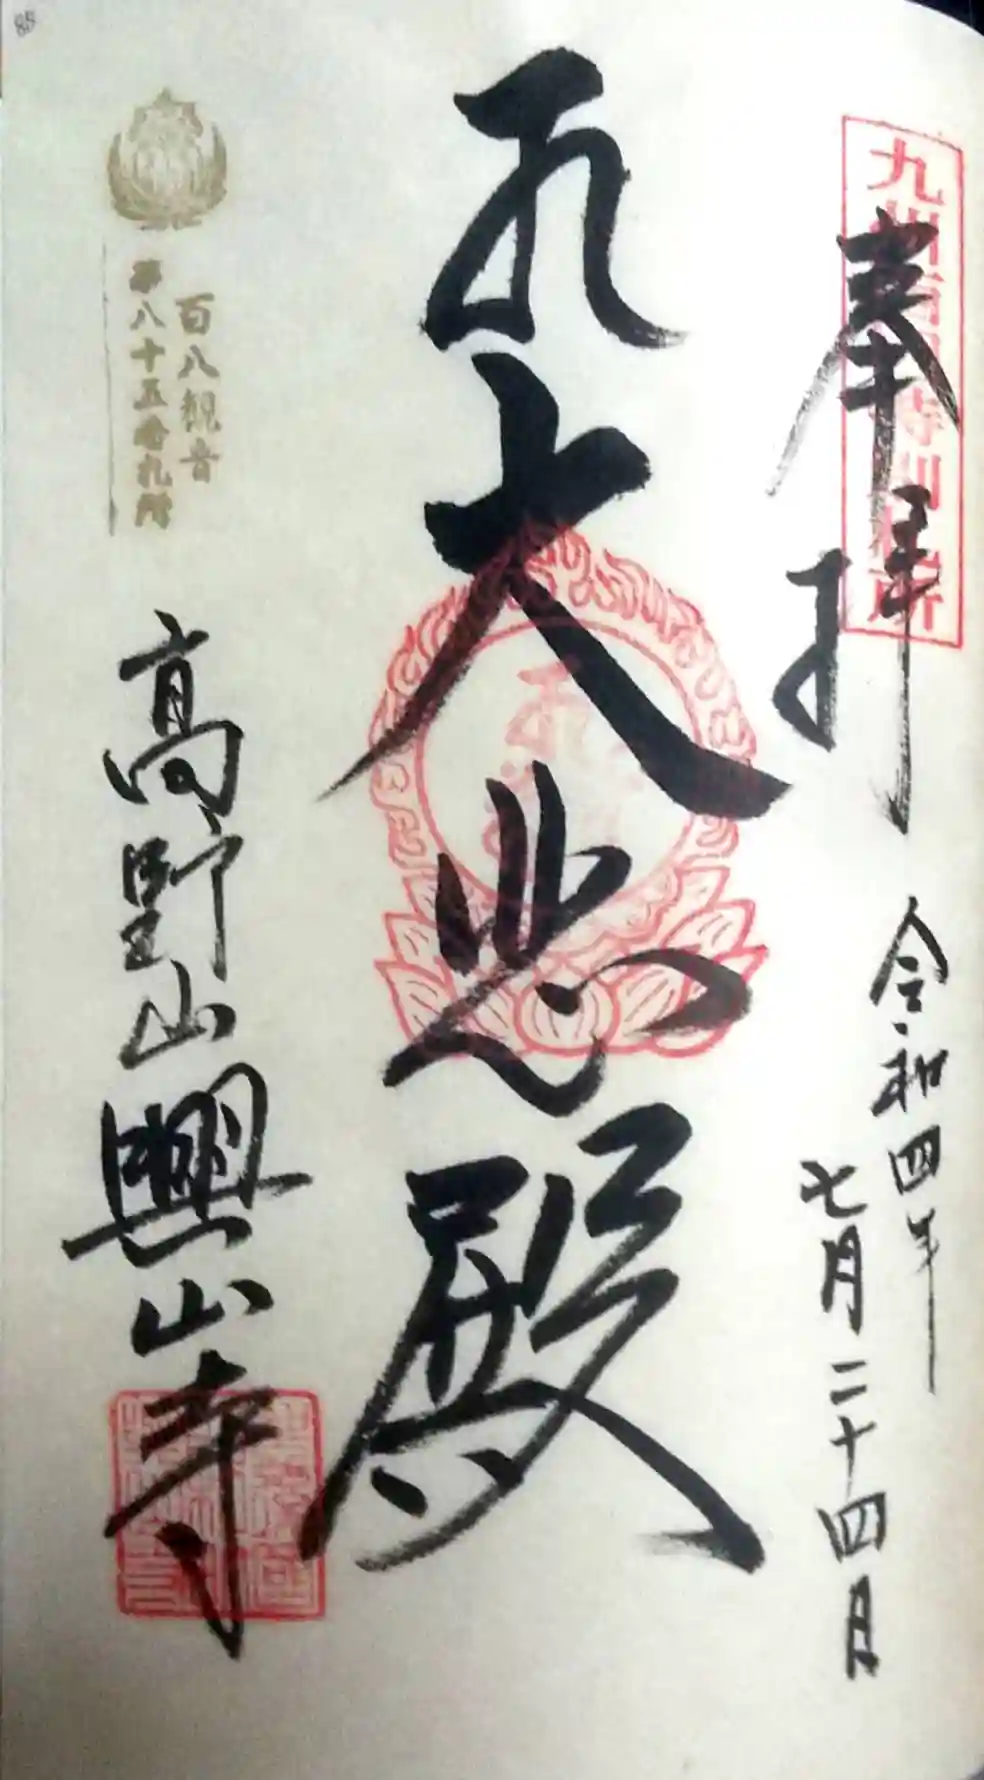 奉拝
令和四年
七月二十四日
大悲殿
百八観音
第八十五番札所
高野山興山寺
85